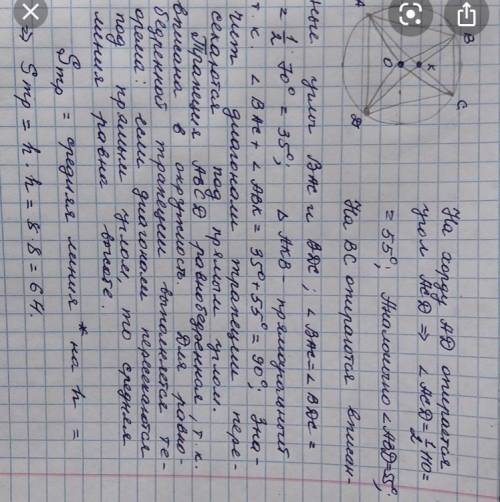 A
B
O
K
C
D
На хорду AD опирается
угол ACD ⇒ ∠ACD = 1/2 110 =
= 55°. Аналогично ∠ABD = 55°.
На BC опираются вписан-
ные углы BAC и BDC; ∠BAC = ∠BDC =
= 1/2 · 70° = 35°; Δ AKB - прямоугольный
т. к. ∠BAC + ∠ABK = 35° + 55° = 90°; Зна-
чит диагонали трапеции пере-
секаются под прямым углом.
Трапеция ABCD равнобедренная, т. к.
вписана в окружность. Для равно-
бедренной трапеции выполняется те-
орема: если диагонали пересекаются
под прямым углом, то средняя
линия равна высоте.
Sтр = средняя линия * на h =
⇒ Sтр = h · h = 8 · 8 = 64.